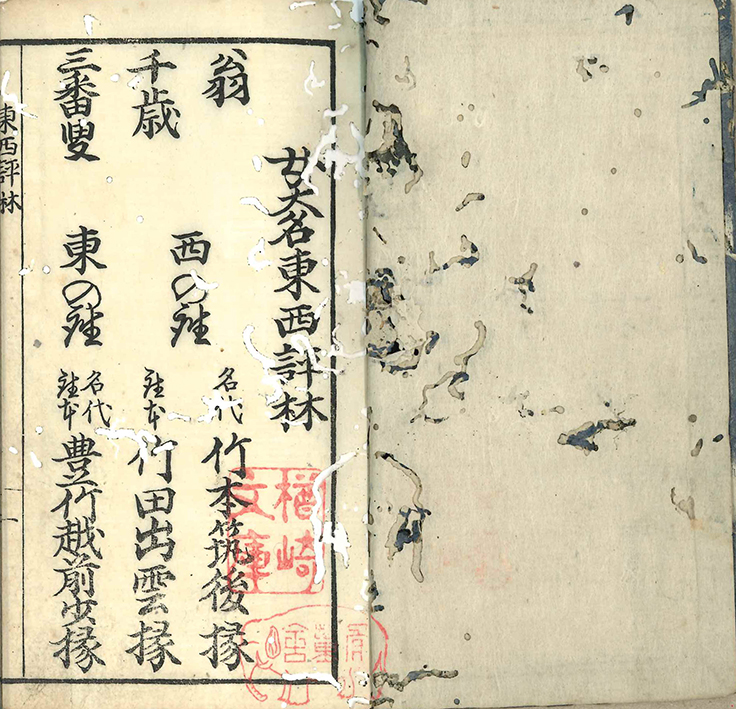 女大名東西評林
翁
西の座
名代 竹本筑後掾
千歳
座本 竹田出雲掾
三番叟
東の座
名代
座本
豊竹越前少掾
東西評林
一
楢崎
文庫